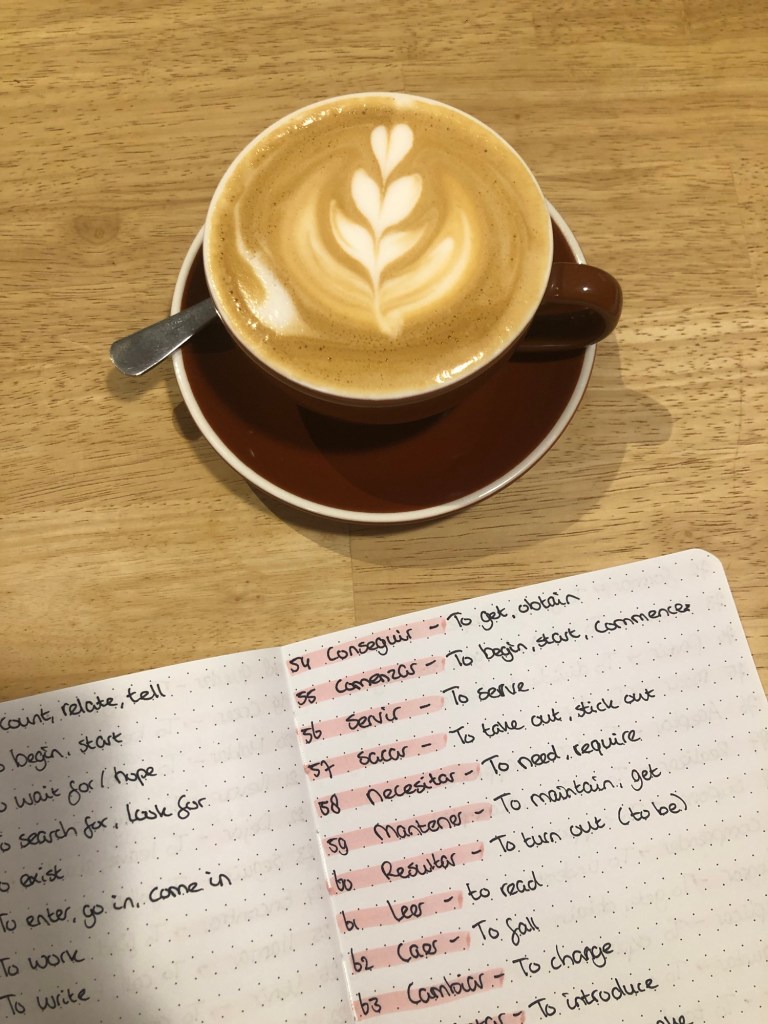 count, relate, tell
begin, start
wait for / hope
search for, look for
exist
To enter, go in, come in
To work
To write
54 Conseguir - To get, obtain
55 Comenzar - To begin, start, commence
56 Servir - To serve
57 Sacar - To take out, stick out
58 Necesitar - To need, require
59 Mantener - To maintain, get
60 Resultar - To turn out (to be)
61 Leer - to read
62 Caer - To fall
63 Cambiar - To change
- To introduce